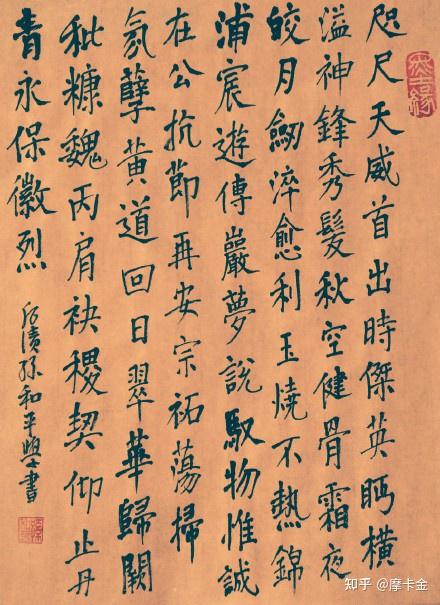 咫尺天威首出時傑英眄横
溢神鋒秀髮秋空健骨霜夜
皎月劒淬愈利玉燒不熱錦
浦宸遊傅巖夢說馭物惟誠
在公抗節再安宗祏蕩掃
氛孽黄道回日翠華歸闕
秕糠魏丙肩袂稷契仰止丹
青永保徽烈
孫和平學書
知乎 @摩卡金